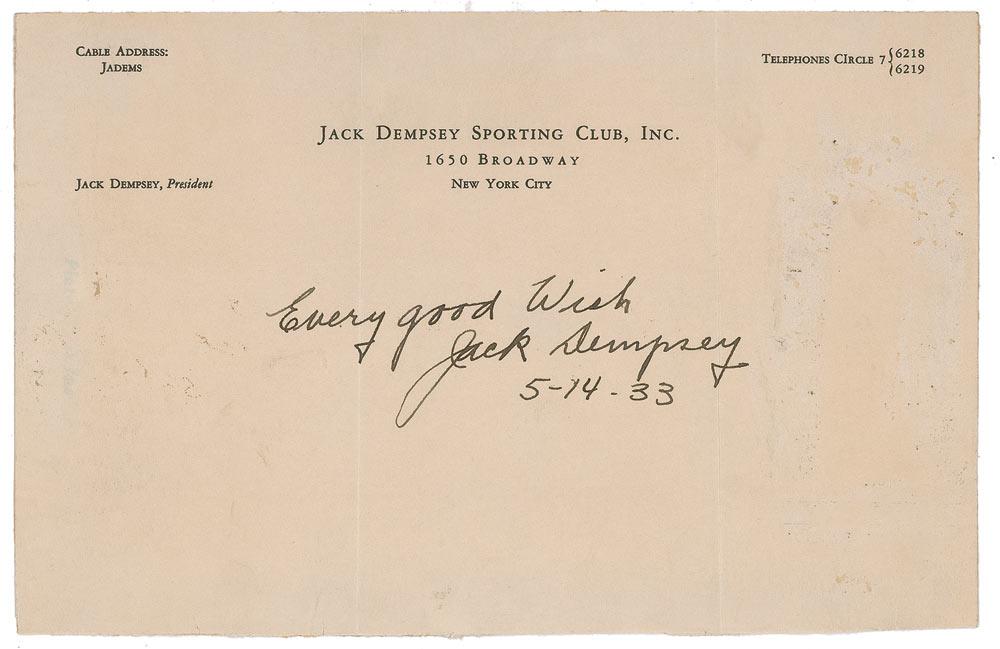 CABLE ADDRESS:
JADEMS
TELEPHONES CIRCLE 7 { 6218
6219
JACK DEMPSEY SPORTING CLUB, INC.
1650 BROADWAY
NEW YORK CITY
JACK DEMPSEY, President
Every good Wish
Jack Dempsey
5-14-33